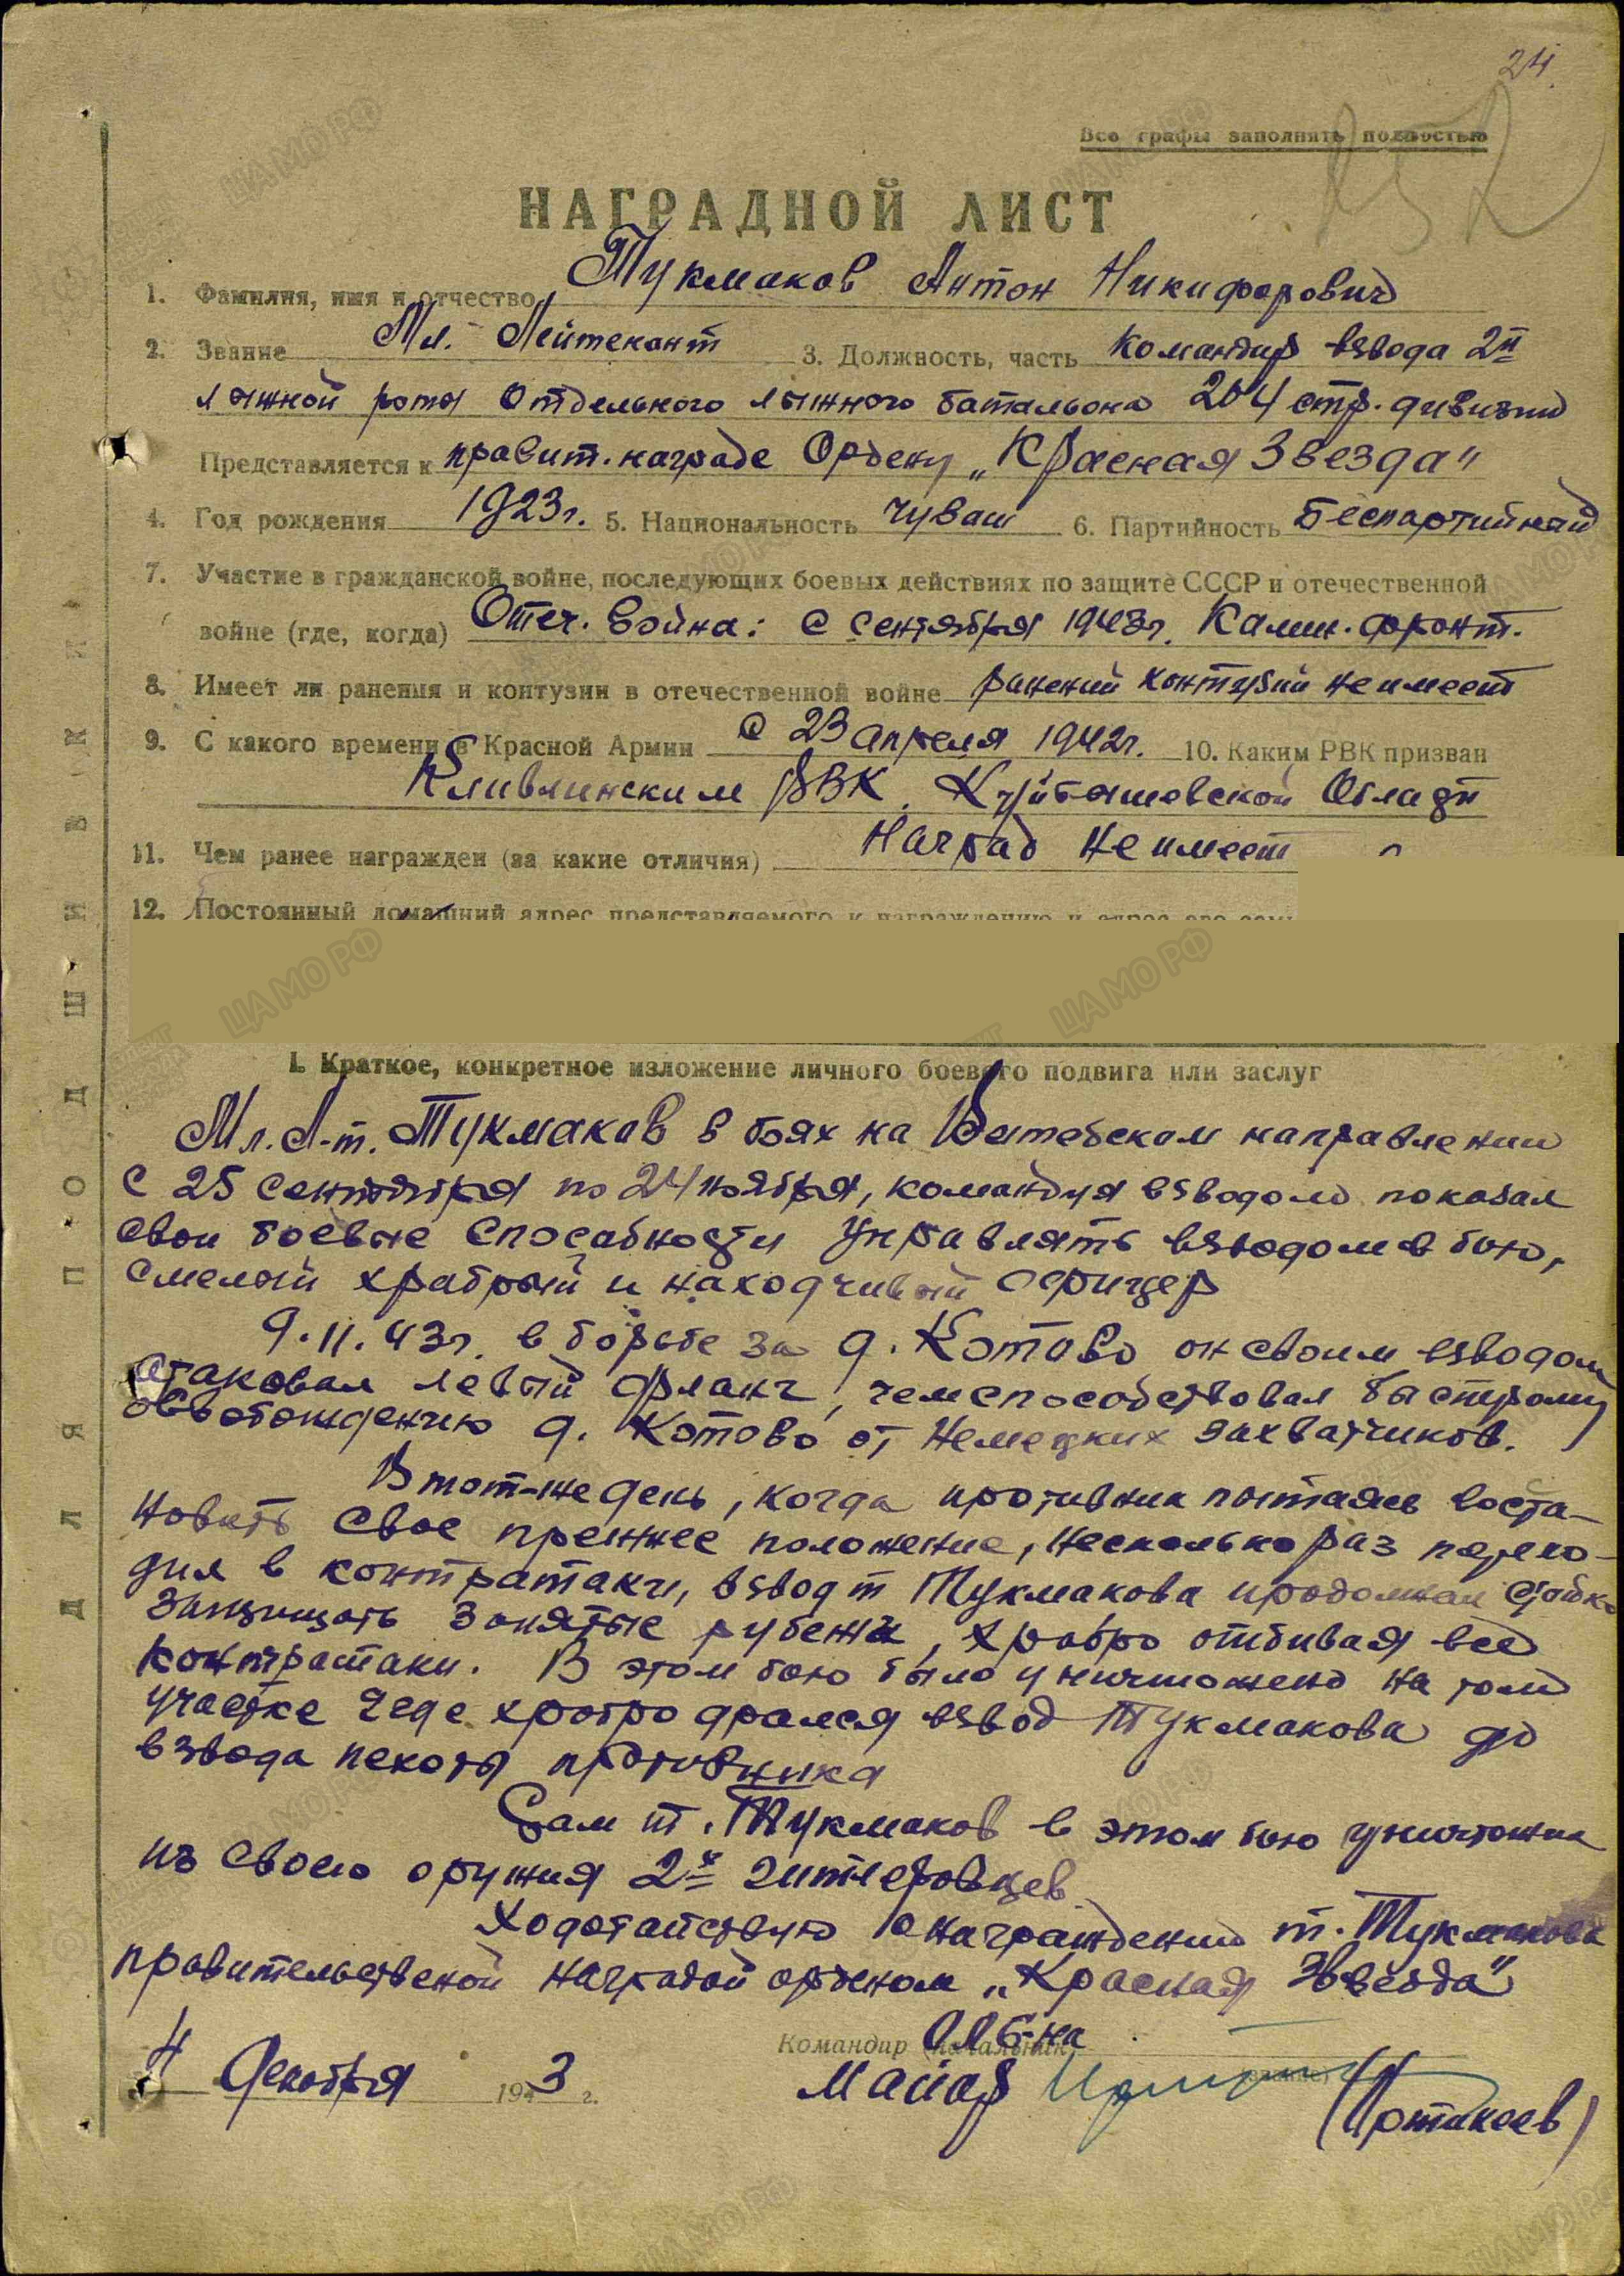 24.
252
Все графы заполнять полностью
НАГРАДНОЙ ЛИСТ
1. Фамилия, имя и отчество Тукмаков Антон Никифорович
2. Звание Мл. Лейтенант 3. Должность, часть Командир взвода 2й
лыжной роты Отдельного лыжного батальона 204 стр. дивизии
Представляется к правит. награде Ордену „Красная Звезда"
4. Год рождения 1923г. 5. Национальность Чуваш 6. Партийность Беспартийный
7. Участие в гражданской войне, последующих боевых действиях по защите СССР и отечественной
войне (где, когда) Отеч. война: с сентября 1943г. Калин. фронт.
8. Имеет ли ранения и контузии в отечественной войне ранений контузий не имеет
9. С какого времени в Красной Армии с 23 апреля 1942г. 10. Каким РВК призван
Кливлинским РВК. Куйбышевской Области
11. Чем ранее награжден (за какие отличия) Наград не имеет
12. Постоянный домашний адрес представляемого к награждению и адрес его
I. Краткое, конкретное изложение личного боевого подвига или заслуг
Мл. Л-т. Тукмаков в боях на Витебском направлении
с 25 сентября по 24 ноября, командуя взводом показал
свои боевые способности управлять взводом в бою,
смелый храбрый и находчивый офицер
9.11.43г. в борьбе за д. Котово он своим взводом
атаковал левый фланг, чем способствовал быстрому
освобождению д. Котово от Немецких захватчиков.
В тот-же день, когда противник пытаясь воста-
новить свое прежнее положение, несколько раз перехо-
дил в контратаки, взвод т Тукмакова продолжал стойко
защищать занятые рубежи, храбро отбивая все
контратаки. В этом бою было уничтожено на том
участке где храбро дрался взвод Тукмакова до
взвода пехоты противника
Сам т. Тукмаков в этом бою уничтожил
из своего оружия 2х гитлеровцев
Ходотайствую о награждении т. Тукмакова
правительственой наградой орденом „Красная Звезда"
Командир (начальник) ОЛБ-на
Декабря 1943 г. Майор
ДЛЯ ПОДШИВКИ
ЦА МО РФ